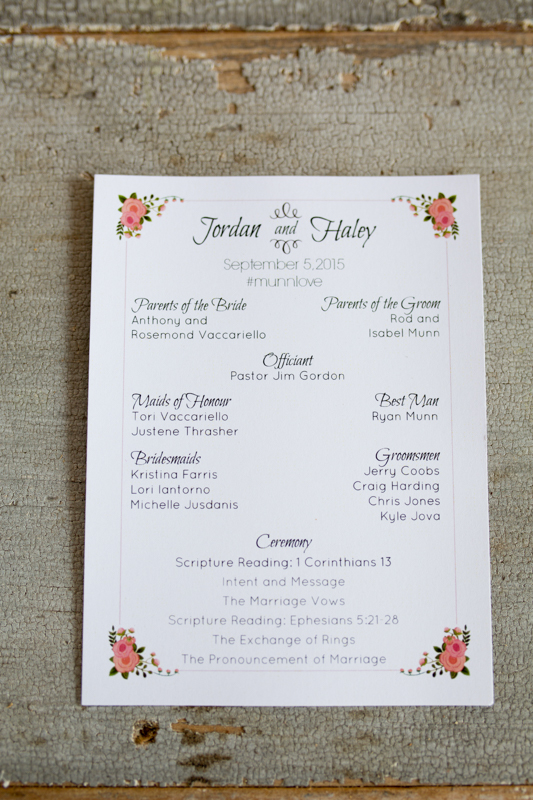 Jordan and Haley
September 5,2015
#munnlove
Parents of the Bride
Anthony and
Rosemond Vaccariello
Parents of the Groom
Rod and
Isabel Munn
Officiant
Pastor Jim Gordon
Maids of Honour
Tori Vaccariello
Justene Thrasher
Best Man
Ryan Munn
Bridesmaids
Kristina Farris
Lori Iantorno
Michelle Jusdanis
Groomsmen
Jerry Coobs
Craig Harding
Chris Jones
Kyle Jova
Ceremony
Scripture Reading: 1 Corinthians 13
Intent and Message
The Marriage Vows
Scripture Reading: Ephesians 5:21-28
The Exchange of Rings
The Pronouncement of Marriage